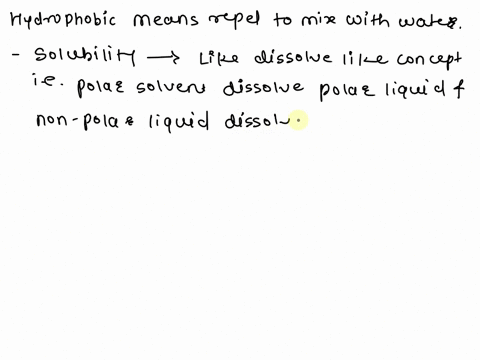 Hydrophobic means repel to mix with water.
- Solubility → Like dissolve like concept
i.e. polar solvent dissolve polar liquid &
non-polar liquid dissolv